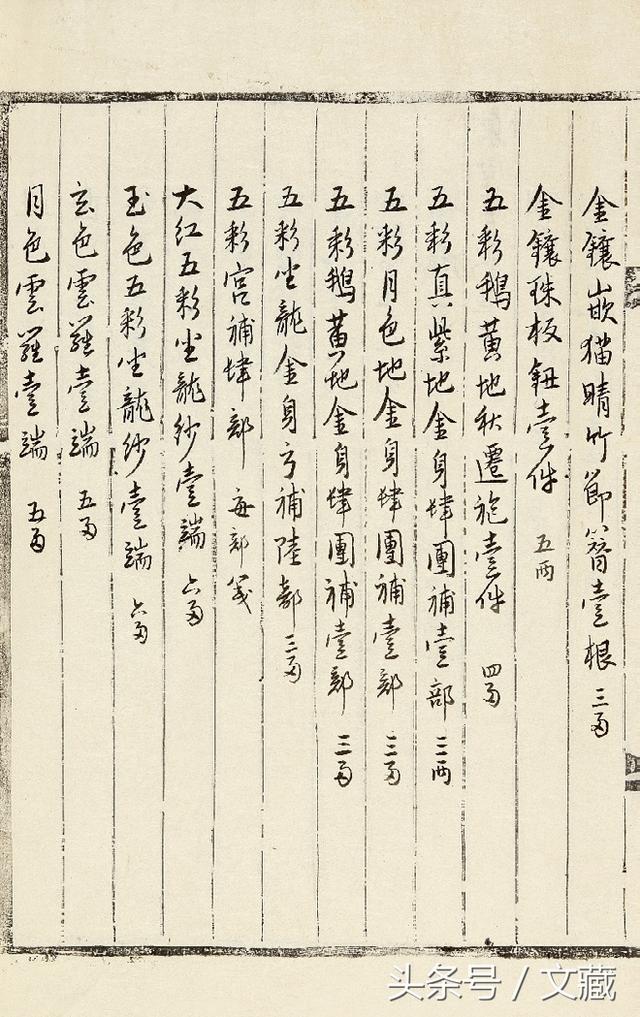 金鑲嵌猫睛竹節簪壹根 三两
金鑲珠板鈕壹件 五两
五彩鵝黄地秋遷袍壹件 四两
五彩真紫地金身肆團補壹部 三两
五彩月色地金身肆團補壹部 三两
五彩鵝黄地金身肆團補壹部 三两
五彩坐龍金身方補陸部 三两
五彩宫補肆部 每部
大红五彩坐龍纱壹端 六两
玉色五彩坐龍纱壹端 六两
玄色雲羅壹端 五两
月色雲羅壹端 五两
头条号 / 文藏